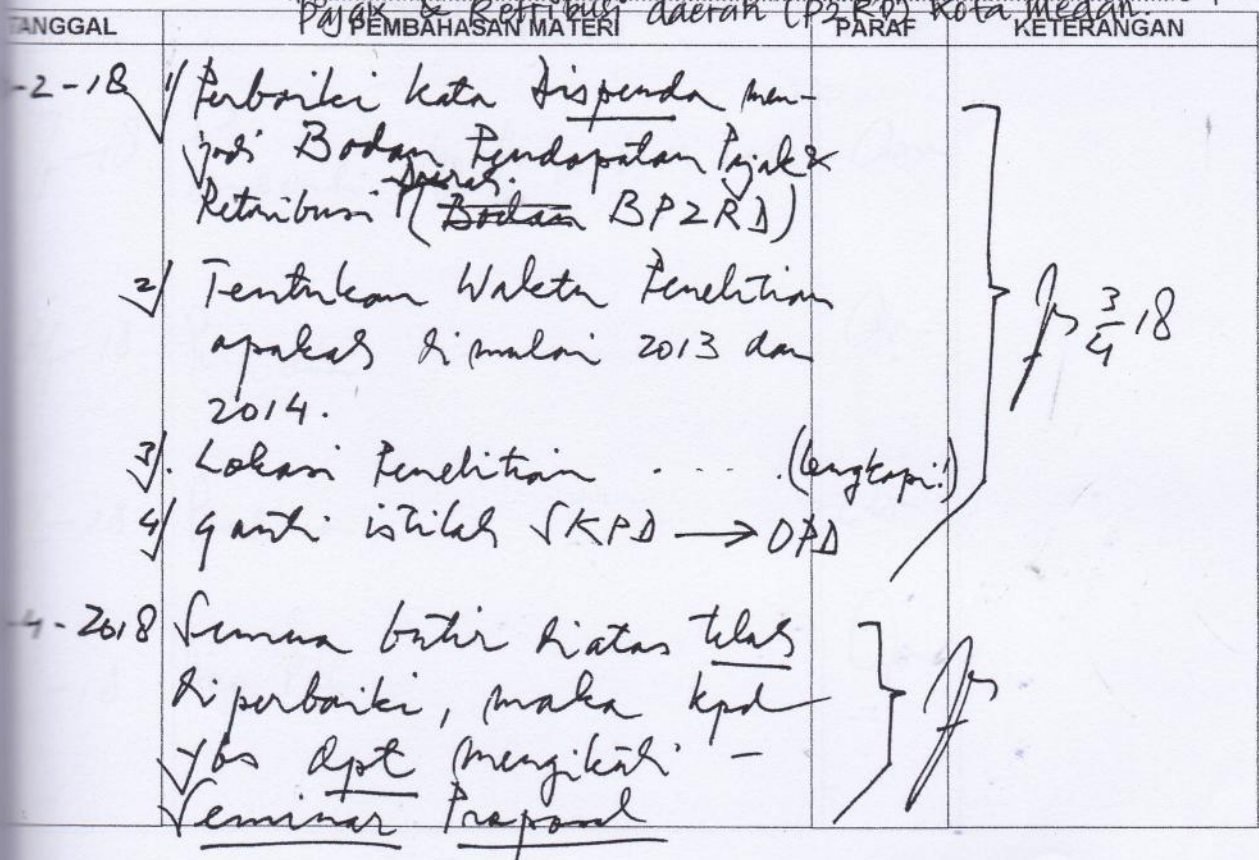 Pajak & Retribusi daerah (P2RD) Kota Medan
TANGGAL PEMBAHASAN MATERI PARAF KETERANGAN
-2-18 1/ Perbaiki kata Dispenda men-
jadi Badan Pendapatan Pajak &
Daerah.
Retribusi (Badan BP2RD)
2/ Tentukan Waktu Penelitian
apakah dimulai 2013 dan
2014.
3/. Lokasi Penelitian . . . . . (lengkapi!)
4/ ganti istilah SKPD → OPD
3/4 18
-4-2018 Semua butir diatas telah
diperbaiki, maka kpd
ybs dpt mengikuti -
Seminar Proposal